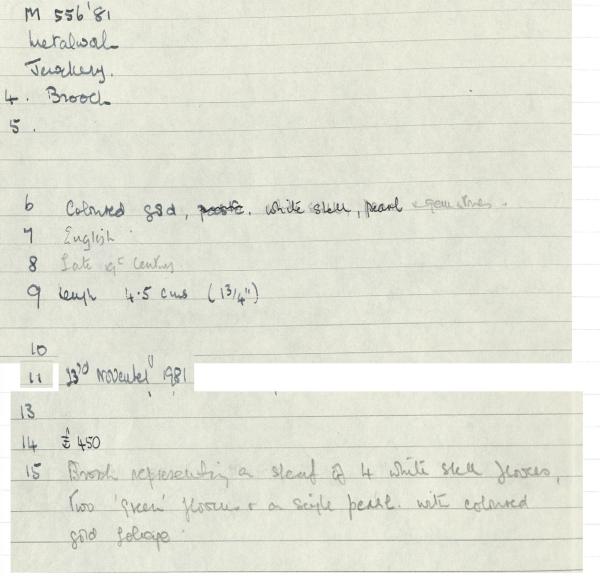 M 556'81
Metalwork
Jewellery.
4. Brooch
5.
6 Coloured gold, white shell, pearl + gemstones.
7 English
8 Late 19c century
9 length 4.5 cms (1 3/4")
10
11 23rd November 1981
13
14 £ 450
15 Brooch representing a sheaf of 4 white shell flowers,
Two 'green' flowers + a single pearl. with coloured
gold foliage.